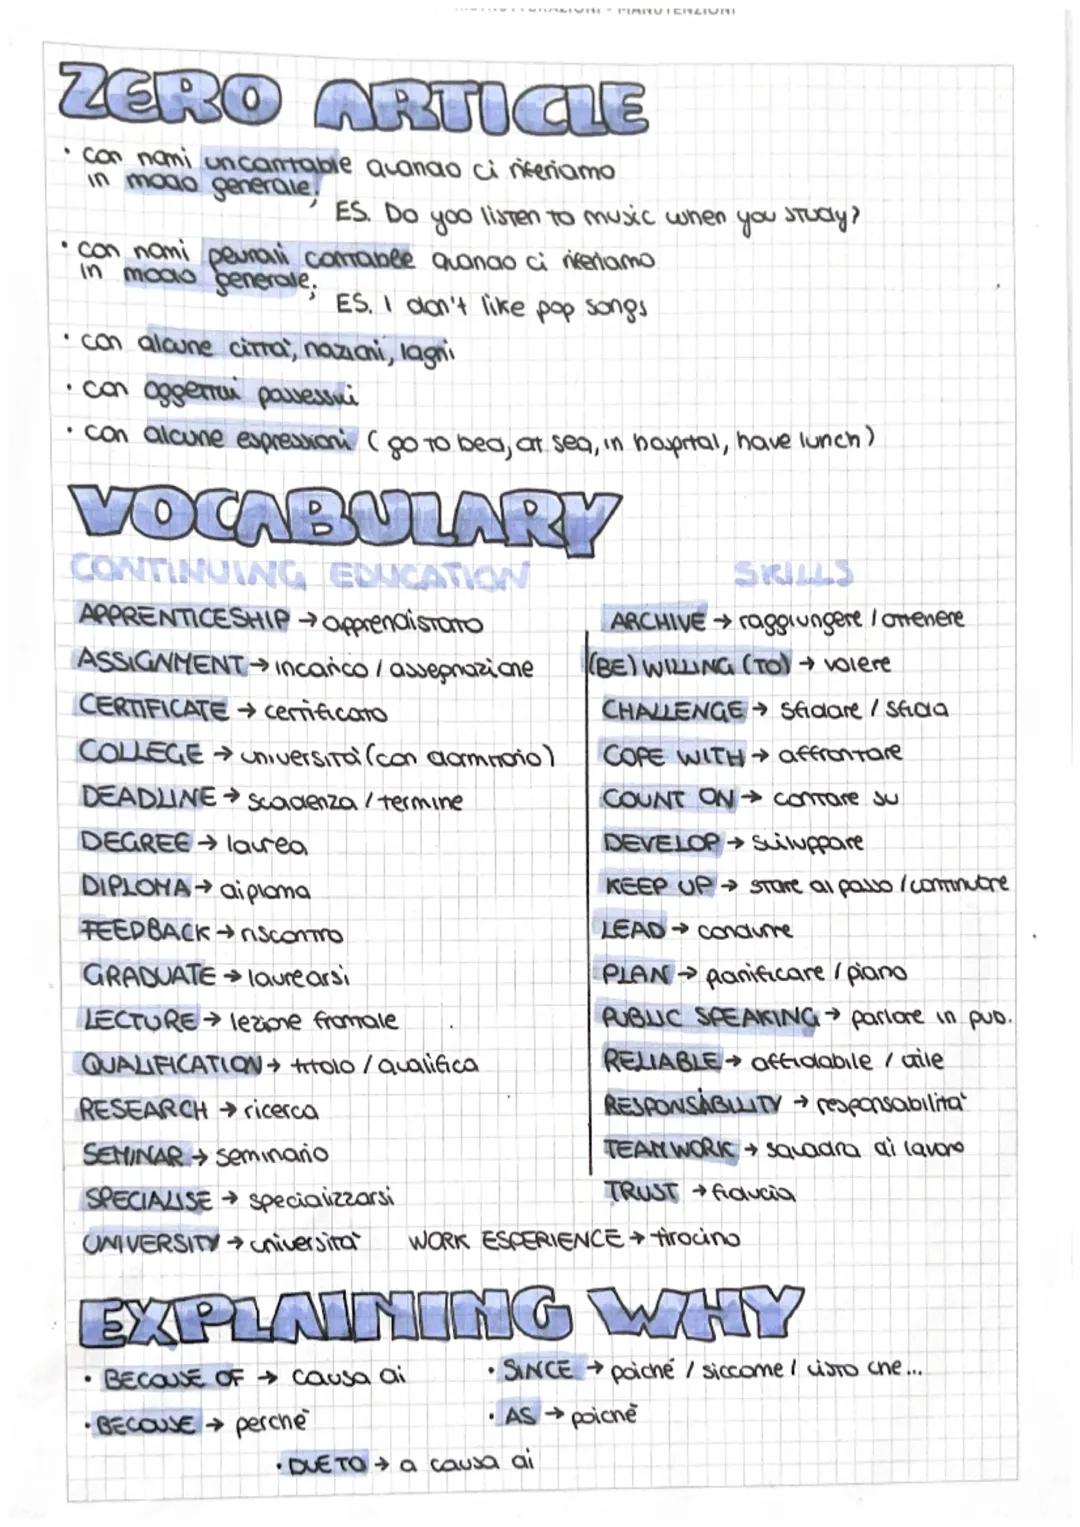 MANUTENZIONI
ZERO ARTICLE
• con nomi uncantable quando ci riferiamo
in modo generale;
ES. Do yoo listen to music when you study?
• con nomi peurali contabee quando ci riferiamo
in modo generale;
ES. I don't like pop songs
• con alcune città, nazioni, lagni
• con oggettivi possessivi
• con alcune espressioni (go to bed, at sea, in hospital, have lunch)
VOCABULARY
CONTINUING EDUCATION
APPRENTICESHIP → apprendistato
ASSIGNMENT → incarico / assegnazione
CERTIFICATE → certificato
COLLEGE → università (con dormitorio)
DEADLINE → scadenza / termine
DEGREE → laurea
DIPLOMA → diploma
FEEDBACK → riscontro
GRADUATE → laurearsi
LECTURE → lezione fromale
QUALIFICATION → titolo / qualifica
RESEARCH → ricerca
SEMINAR → seminario
SPECIALISE → specializzarsi
UNIVERSITY → università
WORK ESPERIENCE → tirocino
SKILLS
ARCHIVE → raggiungere / ottenere
(BE) WILLING (TO) → volere
CHALLENGE → sfidare / sfida
COPE WITH → affrontare
COUNT ON → contare su
DEVELOP → sviluppare
KEEP UP → stare al passo / continutre
LEAD → condurre
PLAN → pianificare / piano
PUBLIC SPEAKING → parlare in pub.
RELIABLE → affidabile / utile
RESPONSABILITY → responsabilità
TEAM WORK → squadra di lavoro
TRUST → fiducia
EXPLAINING WHY
• BECOUSE OF → causa di
• SINCE → poiché / siccome / visto che...
• BECOUSE → perché
• AS → poiché
• DUE TO → a causa di